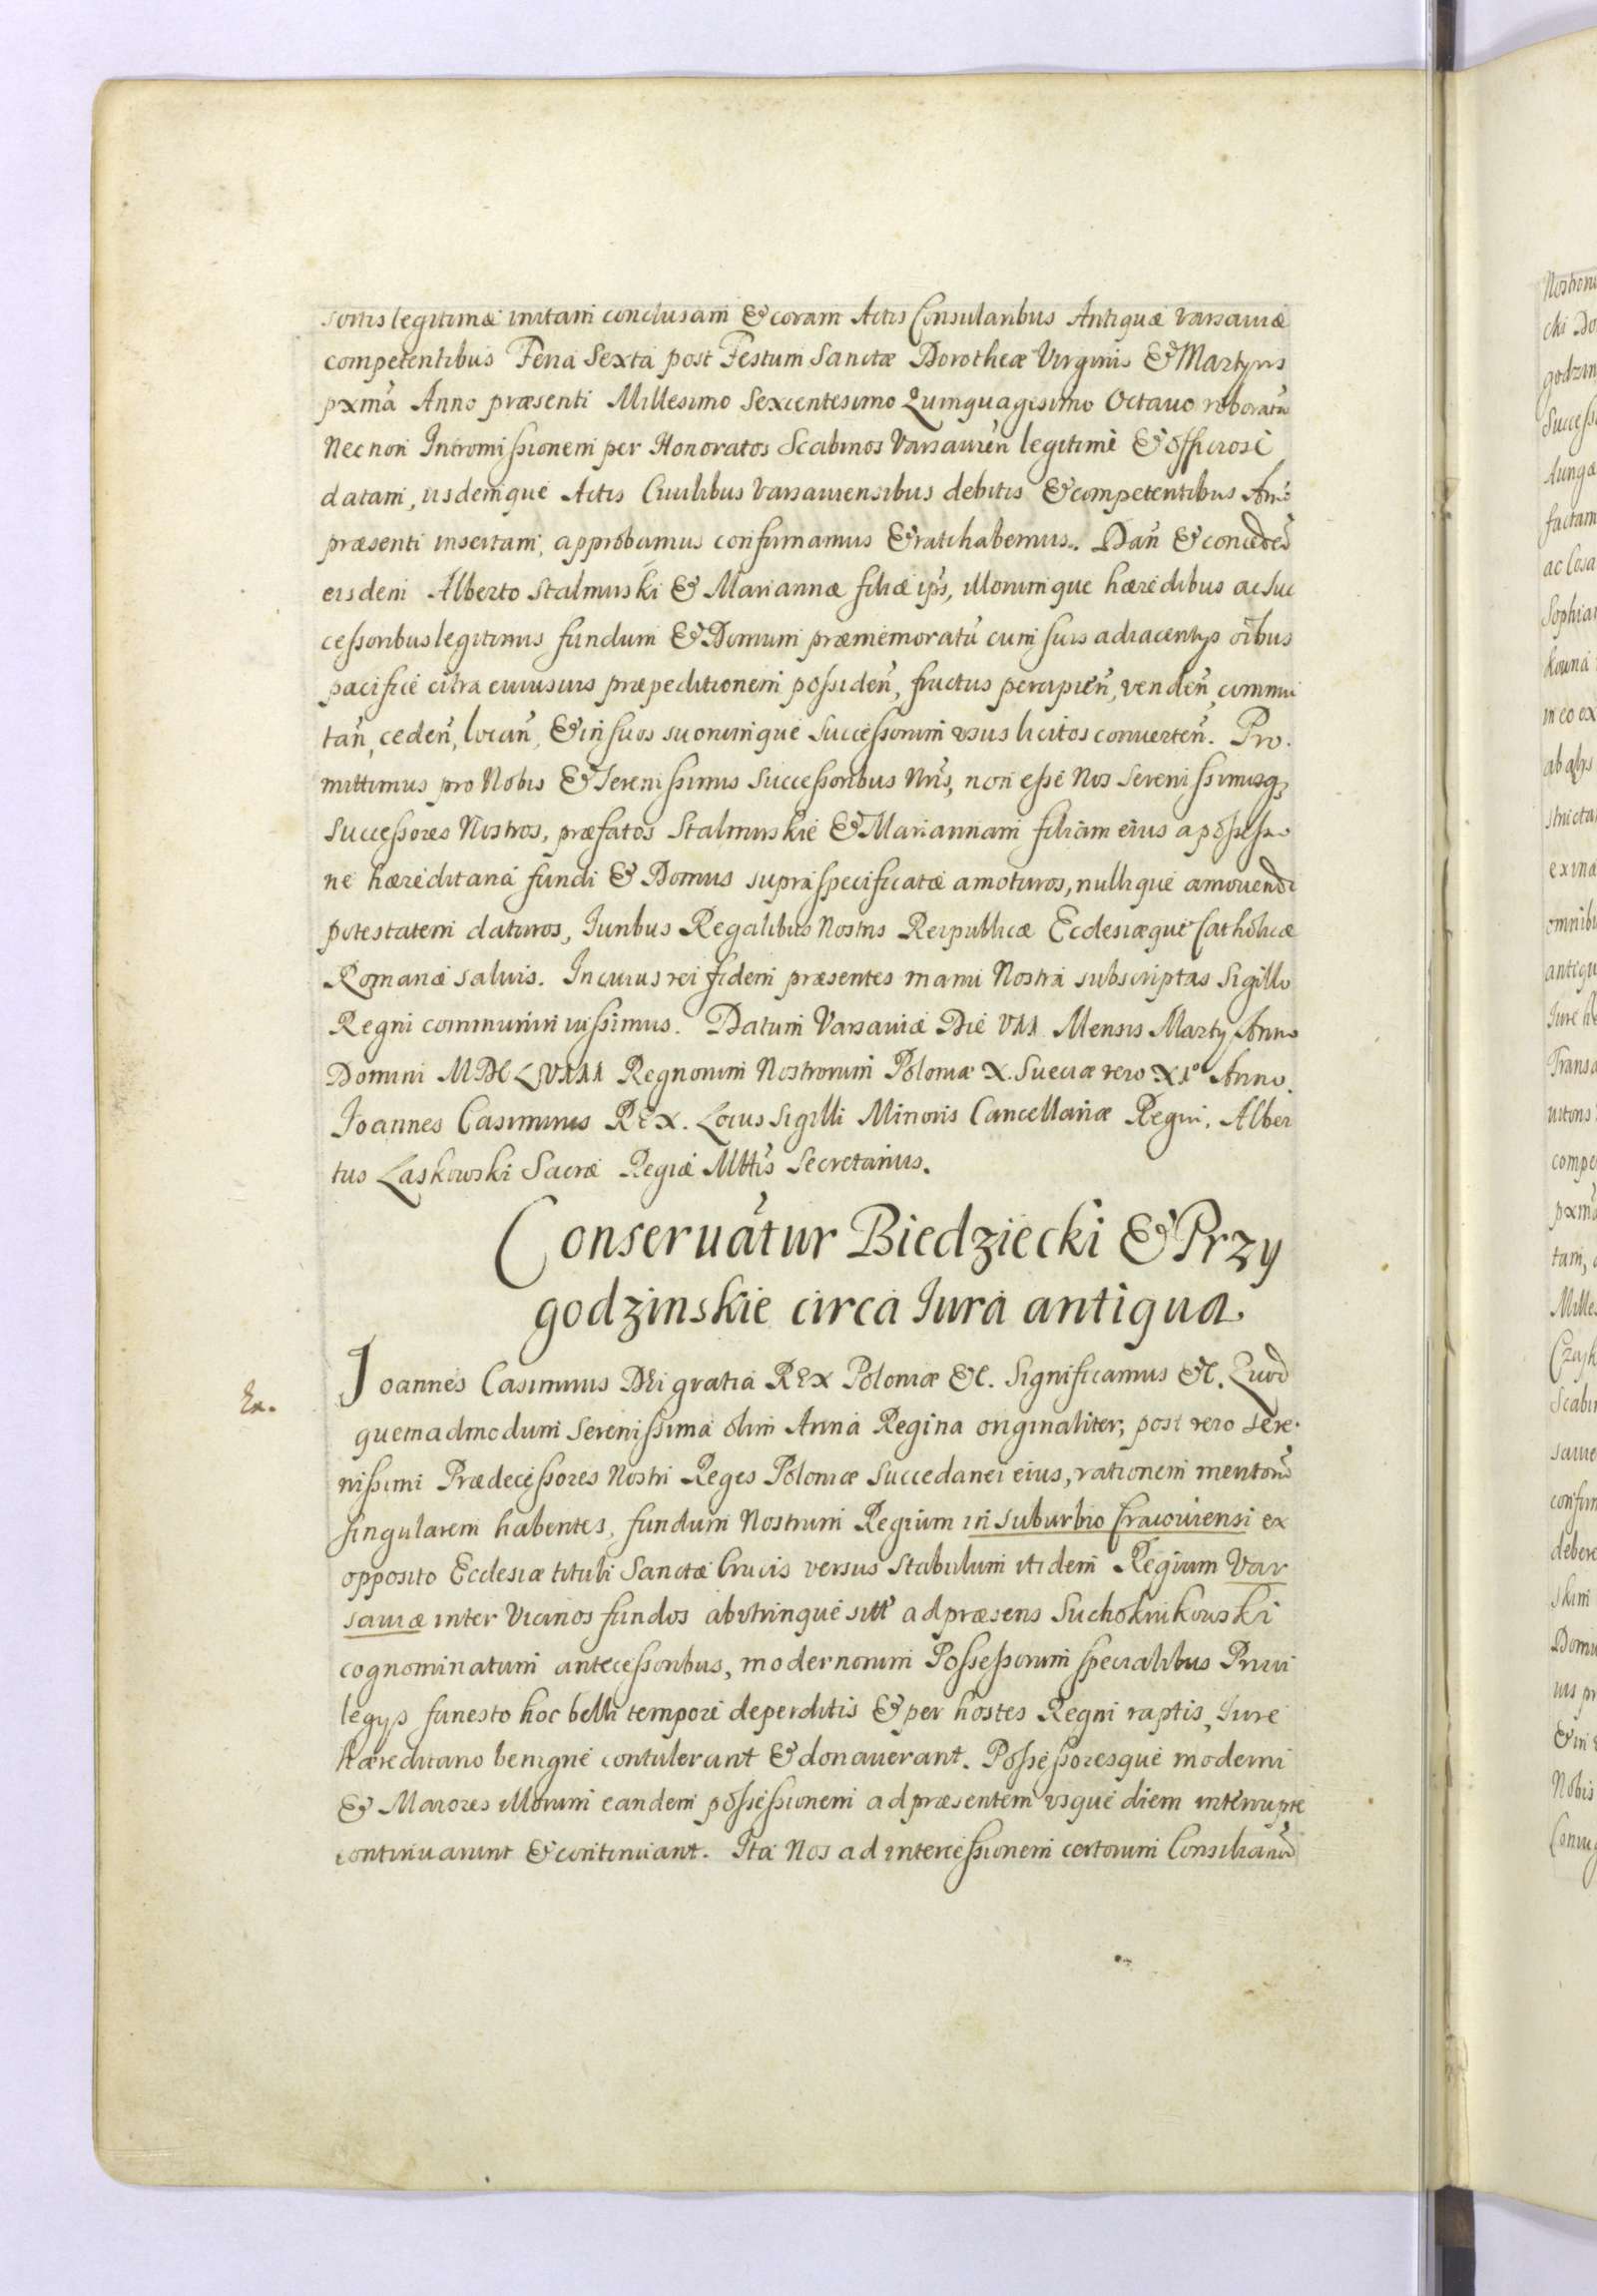 sortis legitimæ initam conclusam & coram Actis Consularibus Antiquæ Varsaviæ
competentibus Feria Sexta post Festum Sanctæ Dorotheæ Virginis & Martyris
pxmã Anno præsenti Millesimo Sexcentesimo Quinquagesimo Octavo roboratũ
Nec non Intromissionem per Honoratos Scabinos Varsavieñ legitime & officiose
datam, iisdemque Actis Civilibus Varsaviensibus debitis & competentibus Anno
præsenti insertam, approbamus confirmamus & ratihabemus. Dañ & conceden̄
eisdem Alberto Stalmirski & Mariannæ filiæ ip̄s, illorumque hæredibus ac suc
cessoribus legitimis fundum & Domum præmemoratũ cum suis adiacentijs oĩbus
pacifice citra cuiusuis præpeditionem possideñ, fructus percipieñ, vendeñ, commu
tañ, cedeñ, locañ, & in suos suorumque Successorum usus licitos converteñ. Pro.
mittimus pro Nobis & Serenissimis Successoribus Nr̃is, non esse Nos Serenissimosq3
Successores Nostros, præfatos Stalmirskie & Mariannam filiam eius a possessio
ne hæreditaria fundi & Domus supra specificatæ amoturos, nullique amovendi
potestatem daturos, Iuribus Regalibus Nostris Reipublicæ Ecclesiæque Catholicæ
Romanæ salvis. In cuius rei fidem præsentes manu Nostra subscriptas Sigillo
Regni communiri iussimus. Datum Varsaviæ Die VII Mensis Martij Anno
Domini MDCLVIII Regnorum Nostrorum Poloniæ X. Sueciæ vero XIº Anno.
Joannes Casimirus REX. Locus Sigilli Minoris Cancellariæ Regni. Alber
tus Laskowski Sacræ Regiæ Mttis Secretarius.
Conservãtur Biedziecki & Przy
godzinskie circa Iura antiqua.
Joannes Casimirus DEi gratia REX Poloniæ &c. Significamus &c. Quod
quemadmodum Serenissima olim Anna Regina originaliter, post vero Sere.
nissimi Prædecessores Nostri Reges Poloniæ Succedanei eius, rationem meritorũ
singularem habentes, fundum Nostrum Regium in suburbio Cracoviensi ex
opposito Ecclesiæ tituli Sanctæ Crucis versus Stabulum itidem Regium Var
saviæ inter Vicinos fundos ab utrinque sitũ ad præsens Suchoknikowski
cognominatum antecessoribus, modernorum Possessorum specialibus Privi
legijs funesto hoc belli tempore deperditis & per hostes Regni raptis, Iure
hæreditario benigne contulerant & donaverant. Possessoresque moderni
& Maiores illorum eandem possessionem ad præsentem usque diem interrupte
continuarunt & continuant. Ita Nos ad intercessionem certorum Consiliariorũ